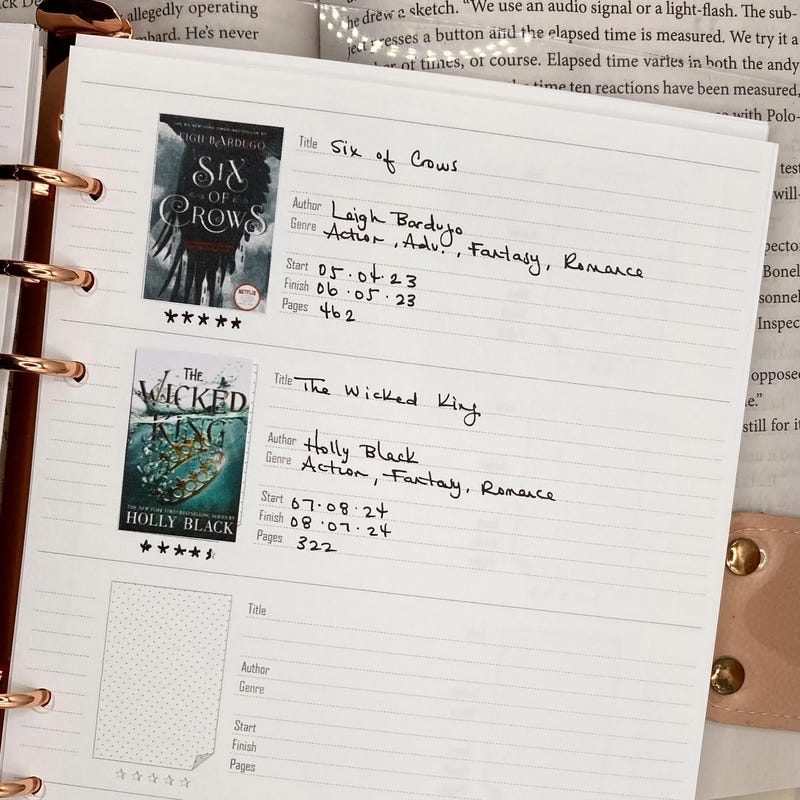 allegedly operating
He's never
he drew a sketch. "We use an audio signal or a light-flash. The sub-
presses a button and the elapsed time is measured. We try it a
of times, of course. Elapsed time varies in both the andy
time ten reactions have been measured,
with Polo-
test
will-
Bonel
sonnel
Inspec
oppose
e."
still for it
LEIGH BARDUGO
SIX
OF
CROWS
NETFLIX
Title Six of Crows
Author Leigh Bardugo
Genre Action, Adv., Fantasy, Romance
Start 05.04.23
Finish 06.05.23
Pages 462
THE
WICKED
KING
THE NEW YORK TIMES BESTSELLING SERIES BY
HOLLY BLACK
Title The Wicked King
Author Holly Black
Genre Action, Fantasy, Romance
Start 07.08.24
Finish 08.07.24
Pages 322
Title
Author
Genre
Start
Finish
Pages